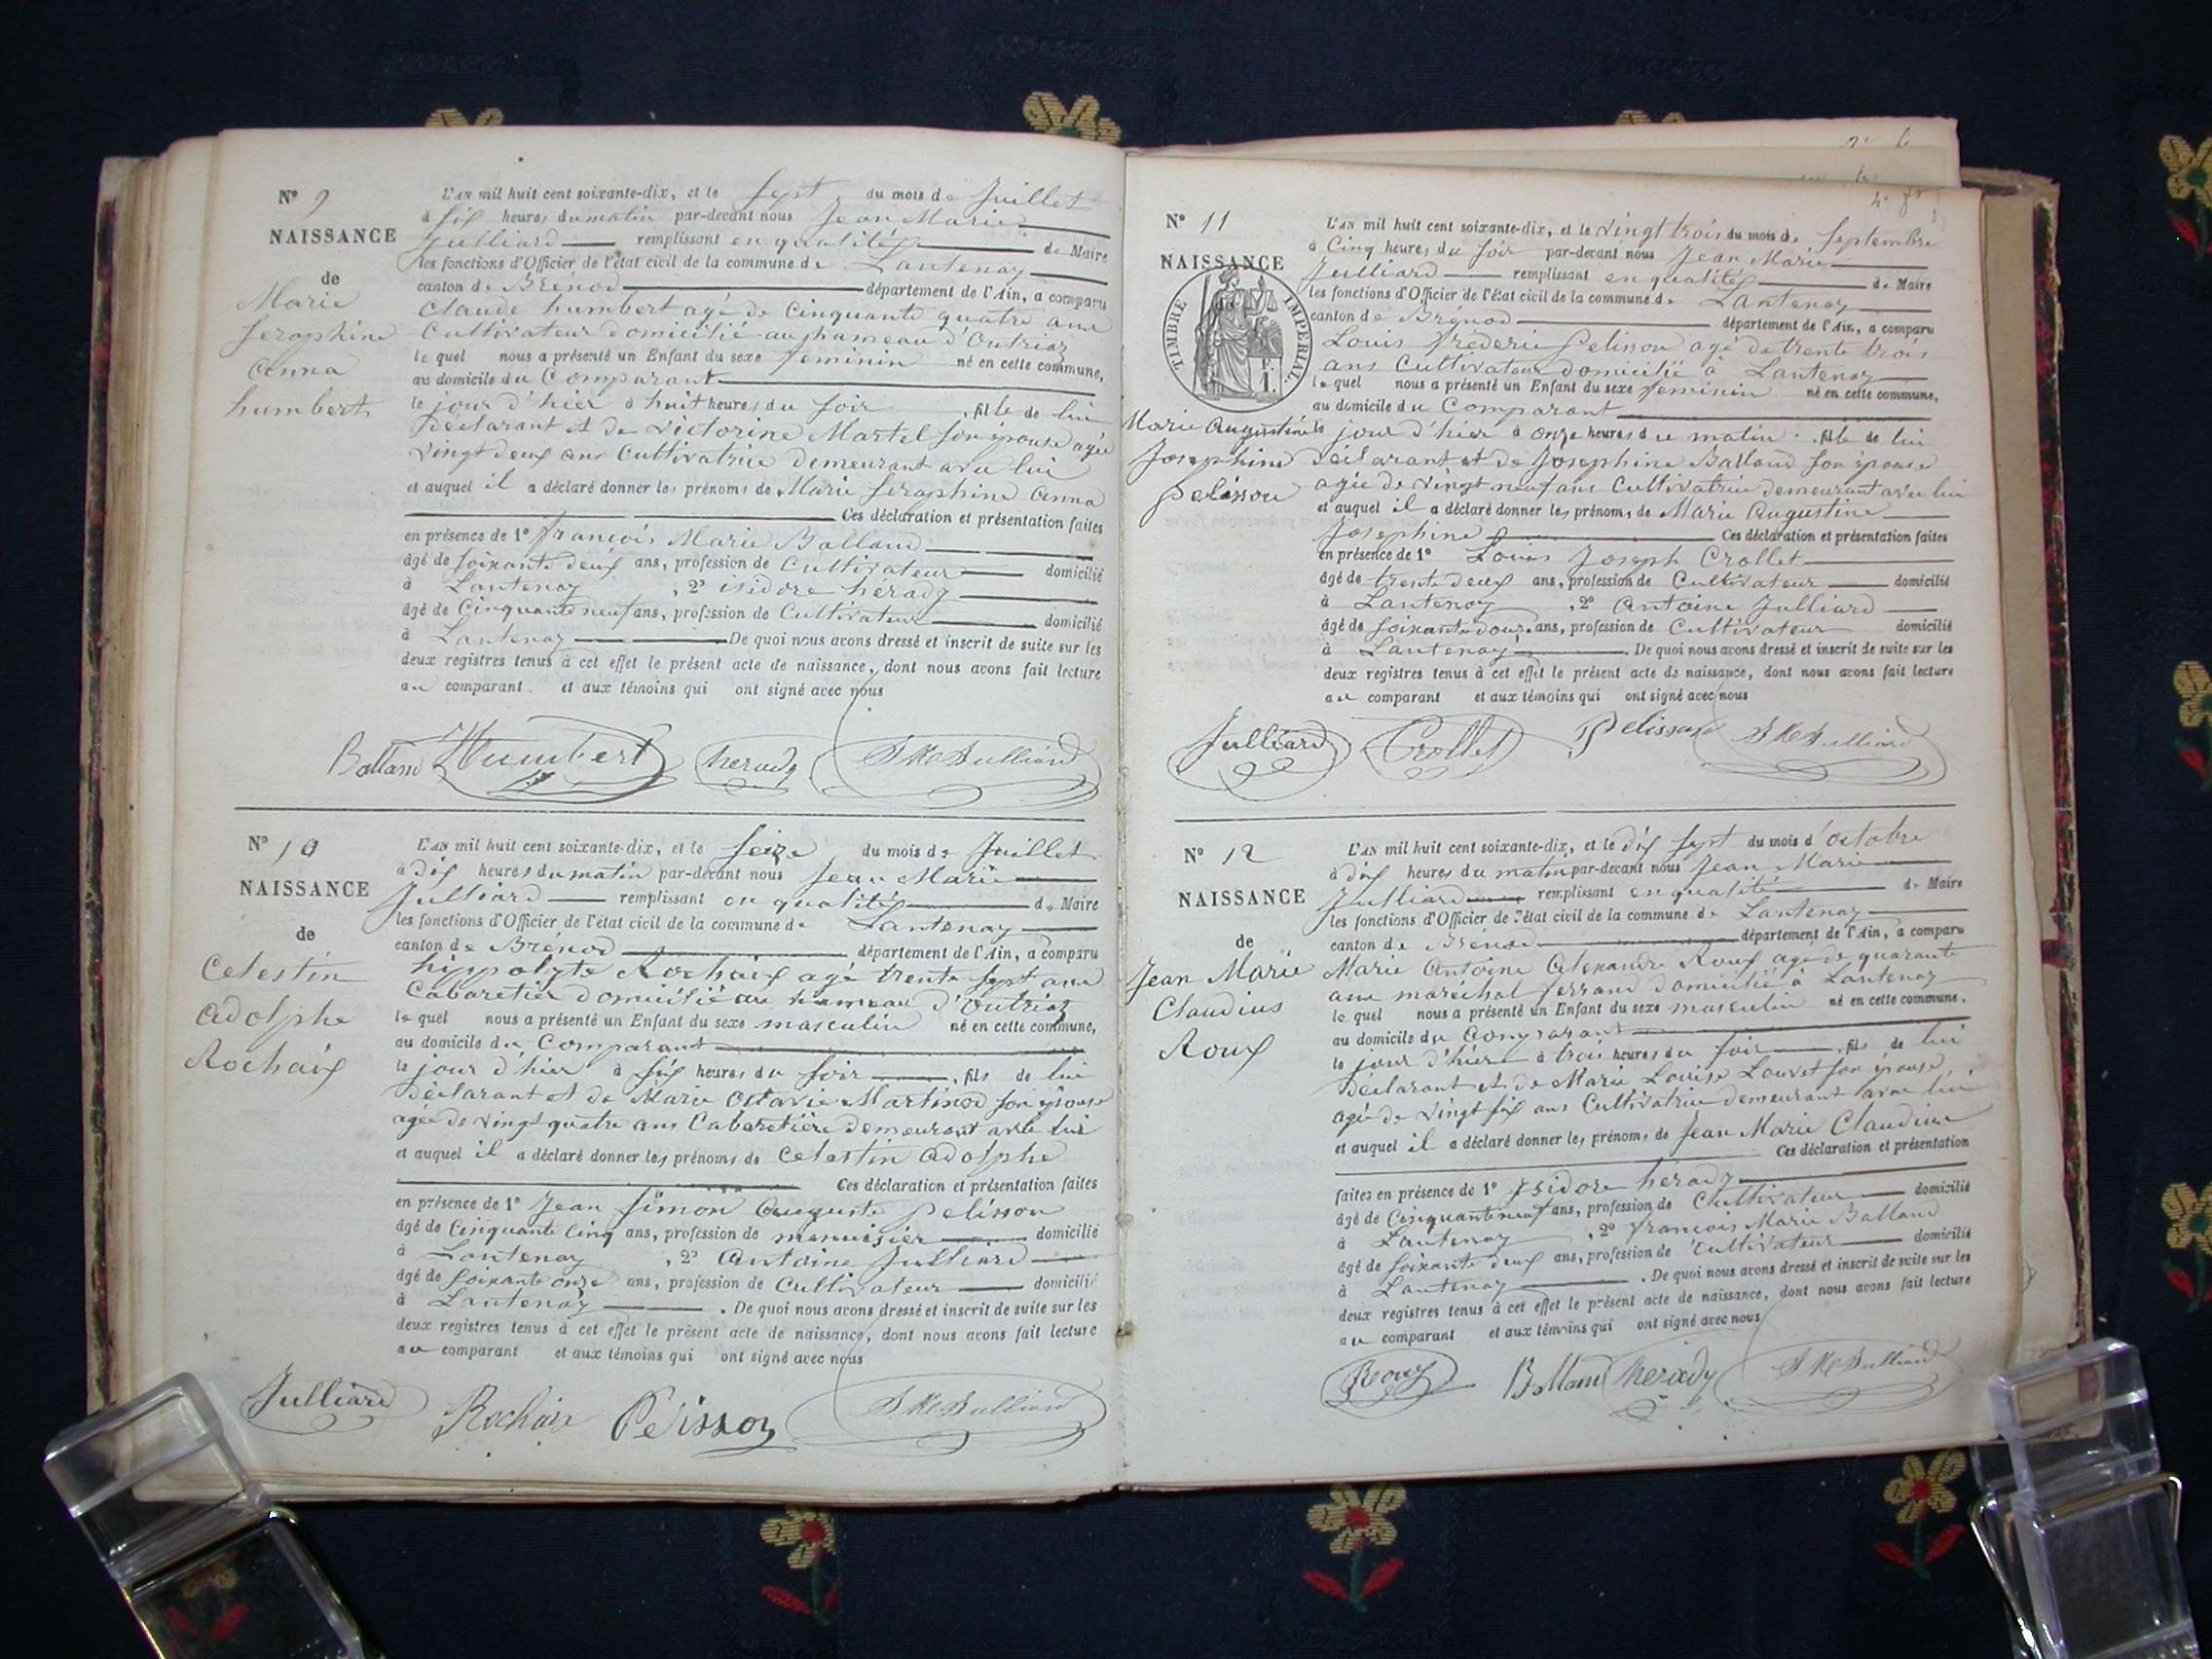 N° 9
NAISSANCE
de
Marie
Seraphine
Anna
humbert
L'AN mil huit cent soixante-dix, et le Sept du mois de Juillet
à Six heures du matin par-devant nous Jean Marie
Julliard remplissant en qualité de Maire
les fonctions d'Officier de l'état civil de la commune de Lantenay
canton de Brénod département de l'Ain, a comparu
Claude humbert agé de Cinquante quatre ans
Cultivateur domicilié au hameau d'Outriaz
lequel nous a présenté un Enfant du sexe feminin né en cette commune,
au domicile du Comparant
le jour d'hier à huit heures du soir, fille de lui
Déclarant et de Victorine Martel son épouse agée
vingt deux ans Cultivatrice demeurant avec lui
et auquel il a déclaré donner les prénoms de Marie Seraphine Anna
Ces déclaration et présentation faites
en présence de 1° François Marie Balland
âgé de soixante deux ans, profession de Cultivateur domicilié
à Lantenay, 2° isidore hérady
âgé de Cinquante neuf ans, profession de Cultivateur domicilié
à Lantenay De quoi nous avons dressé et inscrit de suite sur les
deux registres tenus à cet effet le présent acte de naissance, dont nous avons fait lecture
au comparant et aux témoins qui ont signé avec nous
Balland Humbert herady J M Julliard
N° 10
NAISSANCE
de
Celestin
Adolphe
Rochaix
L'AN mil huit cent soixante-dix, et le Seize du mois de Juillet
à Dix heures du matin par-devant nous Jean Marie
Julliard remplissant en qualité de Maire
les fonctions d'Officier de l'état civil de la commune de Lantenay
canton de Brénod département de l'Ain, a comparu
hippolyte Rochaix agé trente sept ans
Cabaretier domicilié au hameau d'Outriaz
lequel nous a présenté un Enfant du sexe masculin né en cette commune,
au domicile du Comparant
le jour d'hier à six heures du soir, fils de lui
Déclarant et de Marie Octavie Martinod son épouse
agée de vingt quatre ans Cabaretière demeurant avec lui
et auquel il a déclaré donner les prénoms de Celestin Adolphe
Ces déclaration et présentation faites
en présence de 1° Jean Simon Auguste Pelisson
âgé de Cinquante Cinq ans, profession de menuisier domicilié
à Lantenay, 2° Antoine Julliard
âgé de soixante onze ans, profession de Cultivateur domicilié
à Lantenay. De quoi nous avons dressé et inscrit de suite sur les
deux registres tenus à cet effet le présent acte de naissance, dont nous avons fait lecture
au comparant et aux témoins qui ont signé avec nous
Julliard Rochaix Pelisson J M Julliard
N° 11
NAISSANCE
TIMBRE IMPERIAL
Marie Augustine
Josephine
Pelisson
L'AN mil huit cent soixante-dix, et le vingt trois du mois de Septembre
à Cinq heures du soir par-devant nous Jean Marie
Julliard remplissant en qualité de Maire
les fonctions d'Officier de l'état civil de la commune de Lantenay
canton de Brénod département de l'Ain, a comparu
Louis frédéric Pelisson agé de trente trois
ans Cultivateur domicilié à Lantenay
lequel nous a présenté un Enfant du sexe feminin né en cette commune,
au domicile du Comparant
le jour d'hier à onze heures du matin, fille de lui
Déclarant et de Josephine Balland son épouse
agée de vingt neuf ans Cultivatrice demeurant avec lui
et auquel il a déclaré donner les prénoms de Marie Augustine
Josephine Ces déclaration et présentation faites
en présence de 1° Louis Joseph Crollet
âgé de trente deux ans, profession de Cultivateur domicilié
à Lantenay, 2° Antoine Julliard
âgé de soixante douze ans, profession de Cultivateur domicilié
à Lantenay. De quoi nous avons dressé et inscrit de suite sur les
deux registres tenus à cet effet le présent acte de naissance, dont nous avons fait lecture
au comparant et aux témoins qui ont signé avec nous
Julliard Crollet Pelisson J M Julliard
N° 12
NAISSANCE
de
Jean Marie
Claudius
Roux
L'AN mil huit cent soixante-dix, et le dix sept du mois d'octobre
à dix heures du matin par-devant nous Jean Marie
Julliard remplissant en qualité de Maire
les fonctions d'Officier de l'état civil de la commune de Lantenay
canton de Brénod département de l'Ain, a comparu
Marie Antoine Alexandre Roux agé de quarante
ans maréchal ferrand domicilié à Lantenay
lequel nous a présenté un Enfant du sexe masculin né en cette commune,
au domicile du Comparant
le jour d'hier à trois heures du soir, fils de lui
Déclarant et de Marie Louise Louvet son épouse
agée de vingt six ans Cultivatrice demeurant avec lui
et auquel il a déclaré donner les prénoms de Jean Marie Claudius
Ces déclaration et présentation
faites en présence de 1° Isidore hérady
âgé de Cinquante neuf ans, profession de Cultivateur domicilié
à Lantenay, 2° François Marie Balland
âgé de soixante deux ans, profession de Cultivateur domicilié
à Lantenay. De quoi nous avons dressé et inscrit de suite sur les
deux registres tenus à cet effet le présent acte de naissance, dont nous avons fait lecture
au comparant et aux témoins qui ont signé avec nous
Roux Balland herady J M Julliard